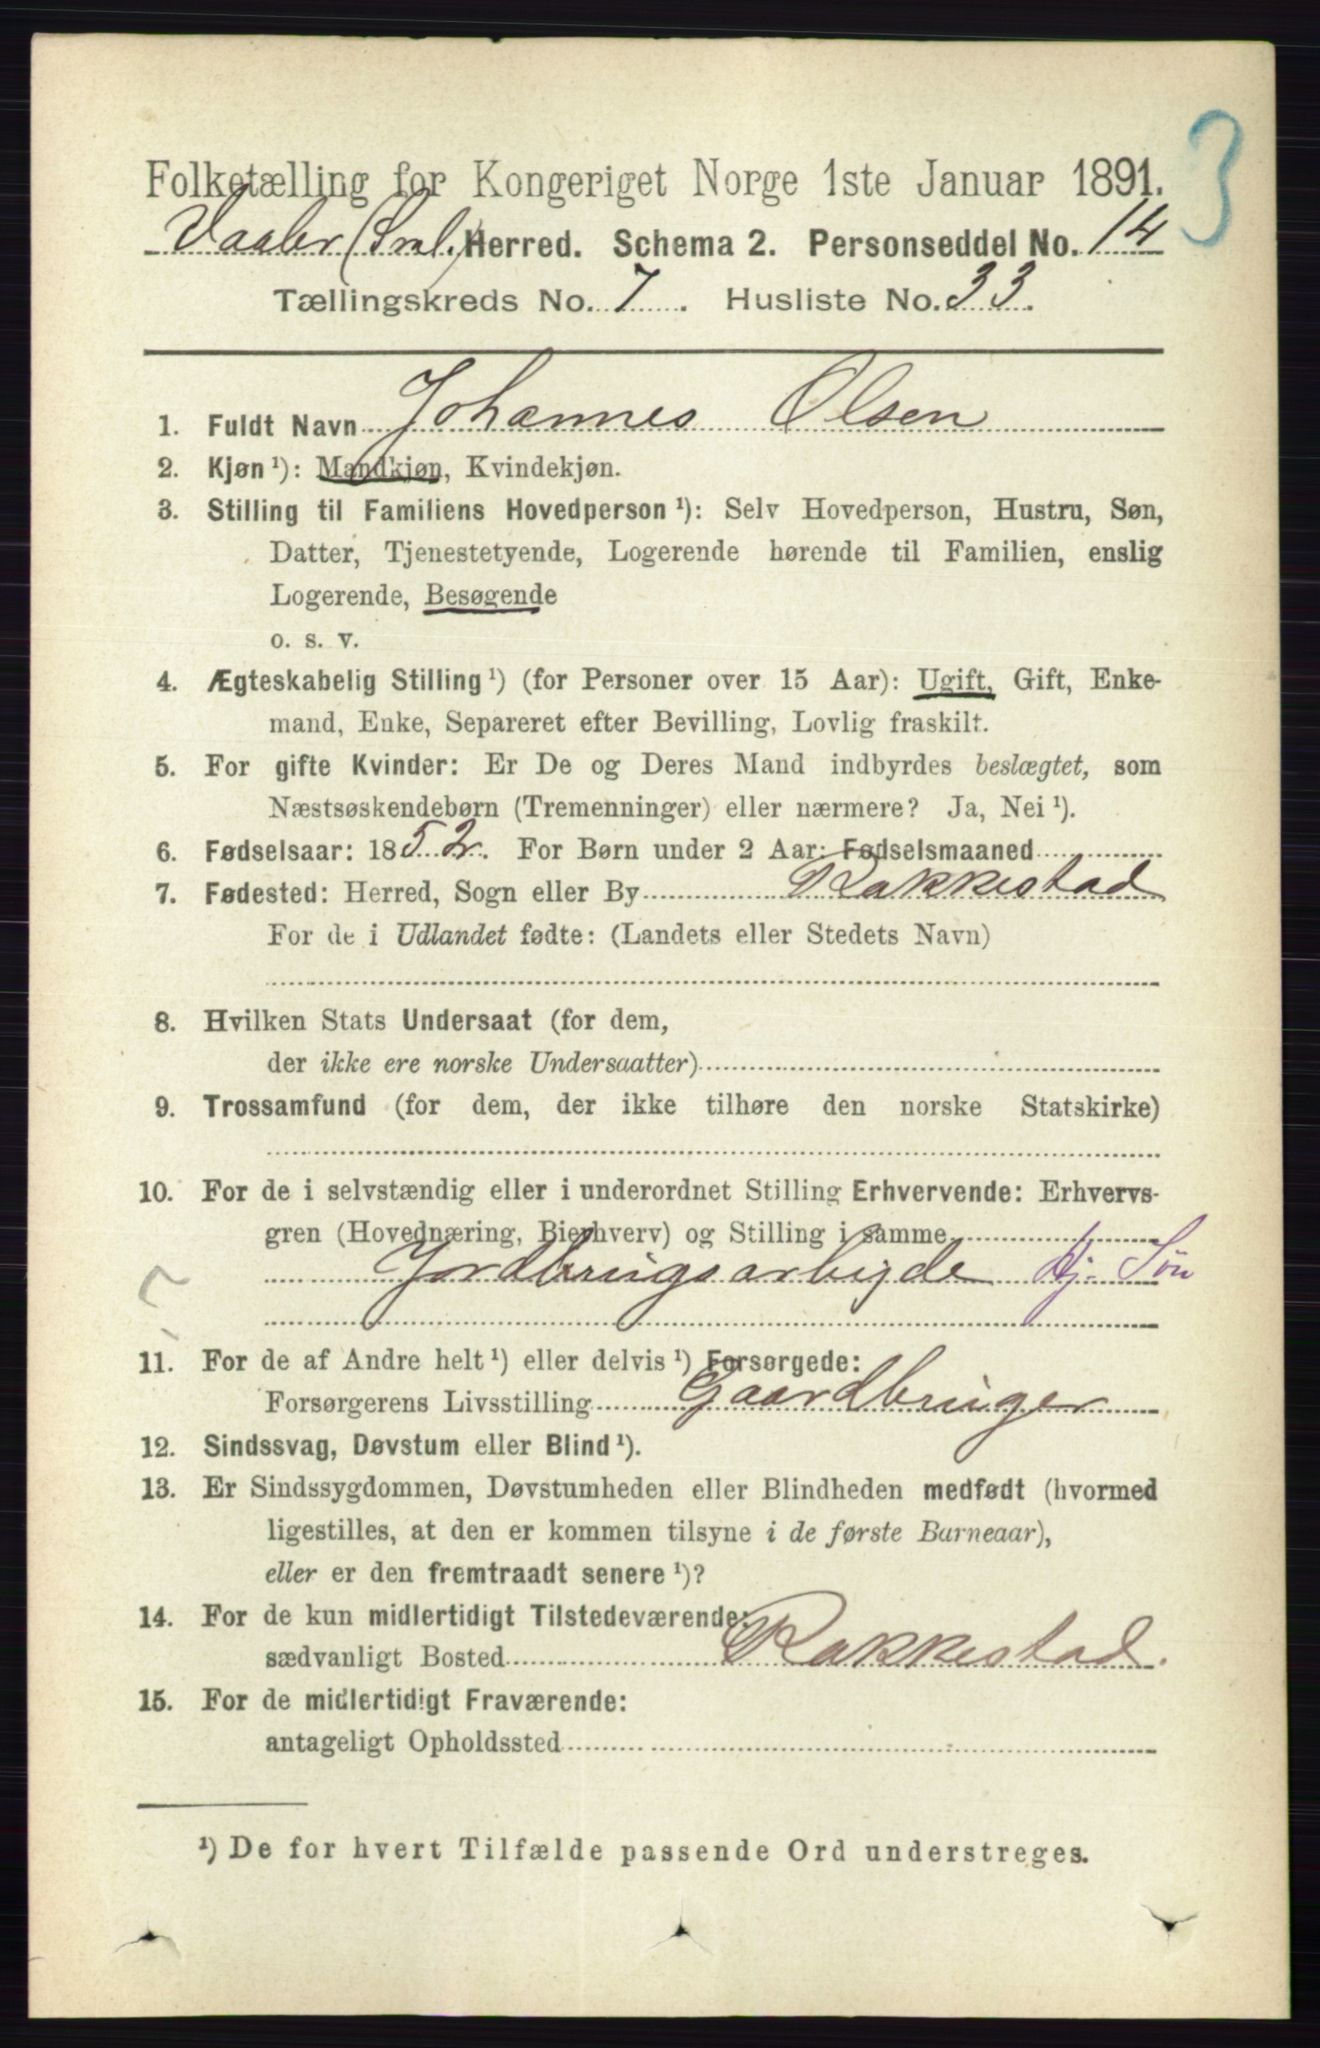 3
Folketælling for Kongeriget Norge 1ste Januar 1891.
Vaaler (Sml.) Herred. Schema 2. Personseddel No. 14
Tællingskreds No. 7. Husliste No. 33.
1. Fuldt Navn Johannes Olsen
2. Kjøn ¹): Mandkjøn, Kvindekjøn.
3. Stilling til Familiens Hovedperson ¹): Selv Hovedperson, Hustru, Søn,
Datter, Tjenestetyende, Logerende hørende til Familien, enslig
Logerende, Besøgende
o. s. v.
4. Ægteskabelig Stilling ¹) (for Personer over 15 Aar): Ugift, Gift, Enke-
mand, Enke, Separeret efter Bevilling, Lovlig fraskilt.
5. For gifte Kvinder: Er De og Deres Mand indbyrdes beslægtet, som
Næstsøskendebørn (Tremenninger) eller nærmere? Ja, Nei ¹).
6. Fødselsaar: 1852. For Børn under 2 Aar: Fødselsmaaned
7. Fødested: Herred, Sogn eller By Rakkestad
For de i Udlandet fødte: (Landets eller Stedets Navn)
8. Hvilken Stats Undersaat (for dem,
der ikke ere norske Undersaatter)
9. Trossamfund (for dem, der ikke tilhøre den norske Statskirke)
10. For de i selvstændig eller i underordnet Stilling Erhvervende: Erhvervs-
gren (Hovednæring, Bierhverv) og Stilling i samme
Jordbrugsarbejde Hj. Søn
11. For de af Andre helt ¹) eller delvis ¹) Forsørgede:
Forsørgerens Livsstilling Gaardbruger
12. Sindssvag, Døvstum eller Blind ¹).
13. Er Sindssygdommen, Døvstumheden eller Blindheden medfødt (hvormed
ligestilles, at den er kommen tilsyne i de første Barneaar),
eller er den fremtraadt senere ¹)?
14. For de kun midlertidigt Tilstedeværende:
sædvanligt Bosted Rakkestad.
15. For de midlertidigt Fraværende:
antageligt Opholdssted
¹) De for hvert Tilfælde passende Ord understreges.